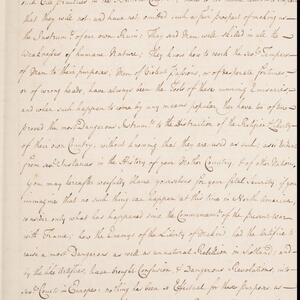 that they will not and have not omitted such a fair prospect of making us
the Instrumts of our own Ruin. They are Men well skilled in all the
Weaknesses of humane Nature; They know how to work the Tempers
of Men to their purposes. Men of Violent Passions, or of desperate fortunes
or of wrong heads, have always been the Tools of these cunning Emissaries
and when such happen to come by any means popular they have too often
proved the most Dangerous Instrumts to the Distruction of the Religion & Liberty
of their own Country, without knowing that they are used as such;
Instances in the History of your Mother Country, & of other Nations.
You may hereafter woefully blame yourselves for your fatal Security, if you
immagine that no such thing can happen at this time in North America,
consider only what has happened since the Commencemt of the present war
with France; how the Enemys of the Liberty of Mankind had the artifice to
cause a most Dangerous as well as unnatural Rebellion in Scotland; and
by the like Artifices have brought Confusion & Dangerous Revolutions into
Courts in Europe: nothing has been so Effectual for these purposes, as